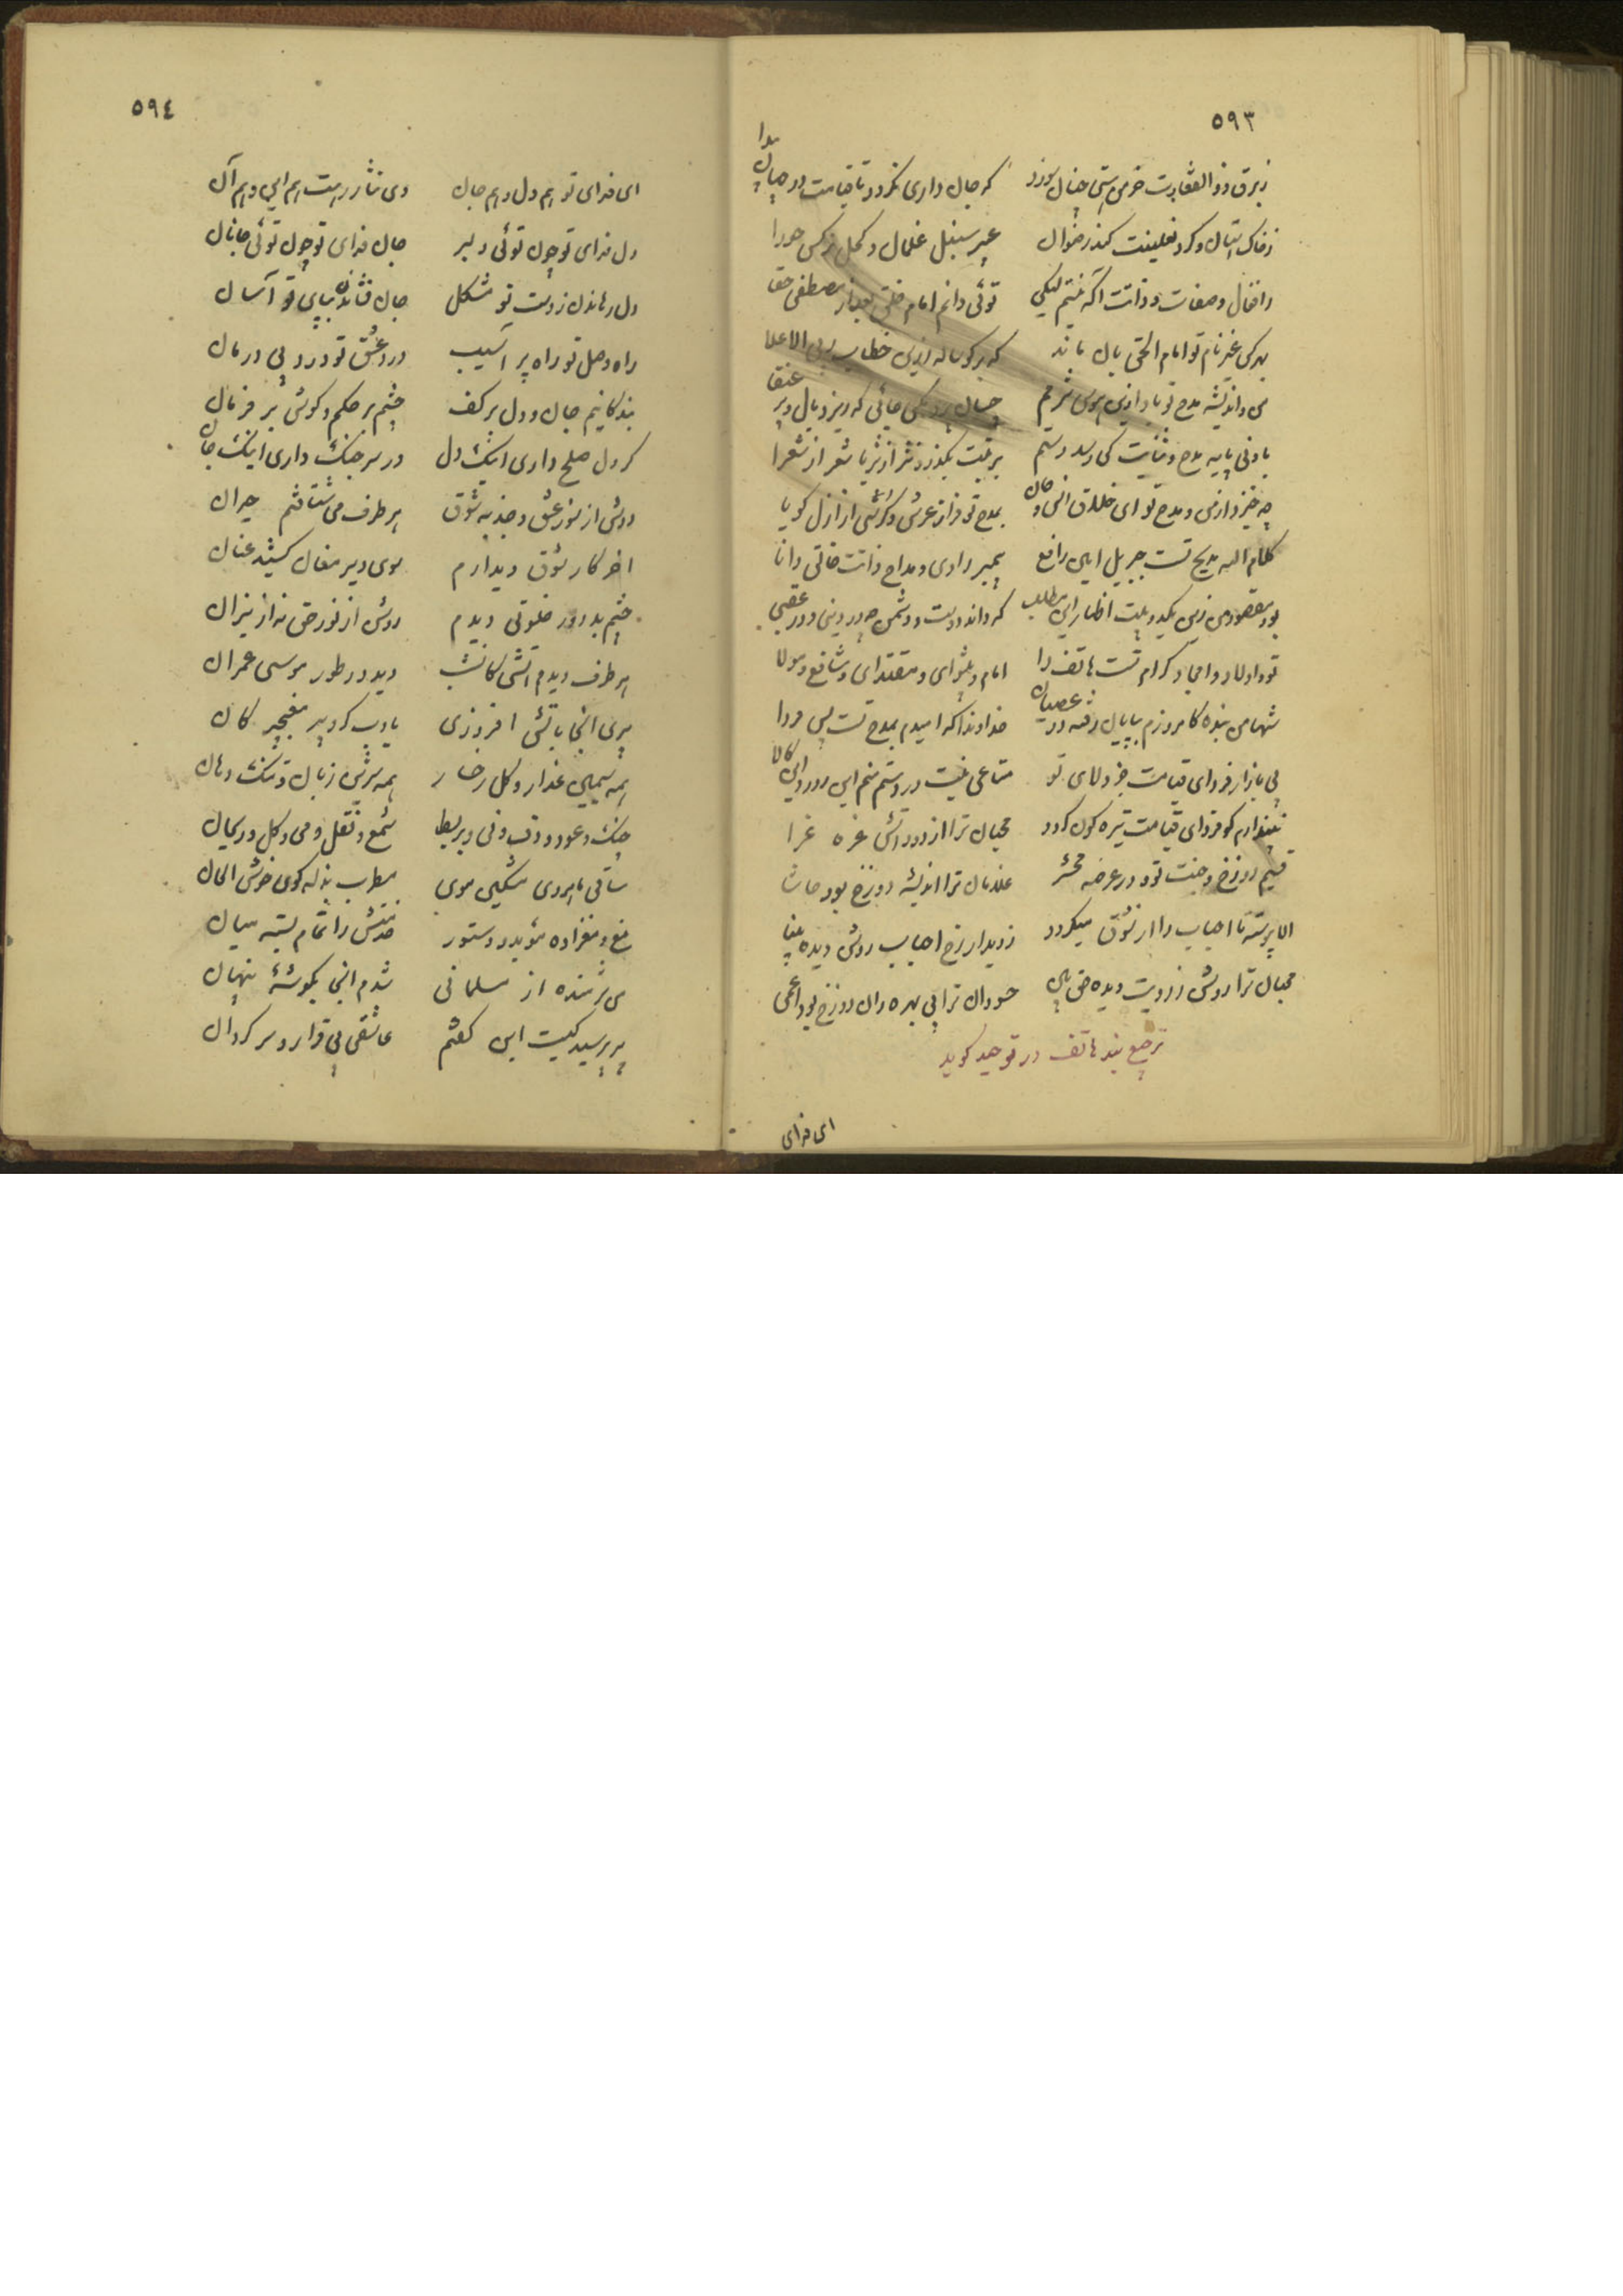 ٥٩٣
ز برق ذو الفقارت خرمن هستی چنان سوزد که جان داری نگردد تا قیامت در جهان پیدا
ز خاک آستان و گرد نعلینت کند رضوان عبیر سنبل غلمان و کحل نرگس حورا
ز افعال و صفات و ذاتت آگه نیستم لیکن توئی دانم امام خلق بعد از مصطفی حقا
بهر کس غیر نام تو امام الحق بدان ماند که بر گوساله زرین خطاب ربی الاعلا
من و اندیشه مدح تو باد از این هوس شرمم چسان پرد مگس جائی که ریزد بال و پر عنقا
بادنی پایه مدح و ثنایت کی رسد دستم بر تبت بگذرد نثر از ثریا شعر از شعرا
چه خیزد از من و مدح تو ای خلاق انس و جان بمدح تو فراز عرش و کرسی از ازل گویا
کلام الله مدیح تست جبریل امین رافع پیمبر راوی و مداح ذاتت خالق دانا
بود مقصود من زین یکدو بیت اظهار این مطلب که داند دوست و دشمن چه در دنیی و در عقبی
تو و اولاد و امجاد کرام تست هاتف را امام و پیشوای و مقتدای و شافع و مولا
شها من بنده کامروزم بپایان رفته در عصیان خداوندا که امیدم بمدح تست پس فردا
پی بازار فردای قیامت جز ولای تو متاعی نیست در دستم منم این روز و این کالا
نپندارم که فردای قیامت تیره گون گردد محبان ترا از دود آتش غره غرا
قسیم دوزخ و جنت توئی در عرصه محشر غلامان ترا اندیشه دوزخ بود حاشا
الا پیوسته تا احباب را از شوق میگردد ز دیدار رخ احباب روشن دیده بینا
محبان ترا روشن ز رویت دیده حق بین حسودان ترا بی بهره زان دوزخ بود اعمی
ترجیع بند هاتف در توحید گوید
ای فدای
٥٩٤
ای فدای تو هم دل و هم جان وی نثار رهت هم این و هم آن
دل فدای تو چون توئی دلبر جان فدای تو چون توئی جانان
دل رهاندن ز دست تو مشکل جان فشاندن بپای تو آسان
راه وصل تو راه پر آسیب درد عشق تو درد بی درمان
بندگانیم جان و دل بر کف چشم بر حکم و گوش بر فرمان
گر دل صلح داری اینک دل ور سر جنگ داری اینک جان
دوش از سوز عشق و جذبه شوق هر طرف می شتافتم حیران
اخر کار شوق دیدارم سوی دیر مغان کشید عنان
چشم بد دور خلوتی دیدم روشن از نور حق نه از نیران
هر طرف دیدم آتشی کانشب دید در طور موسی عمران
پیری آنجا بآتش افروزی بادب گرد پیر مغبچگان
همه سیمین عذار و گل رخسار همه شیرین زبان و تنگ دهان
چنگ و عود و دف و نی و بربط شمع و نقل و می و گل و ریحان
ساقی ماهروی مشکین موی مطرب بذله گوی خوش الحان
مغ و مغزاده موبد و دستور خدمتش را تمام بسته میان
من شرمنده از مسلمانی شدم آنجا بگوشهٔ پنهان
پیر پرسید کیست این گفتم عاشقی بی قرار و سرگردان